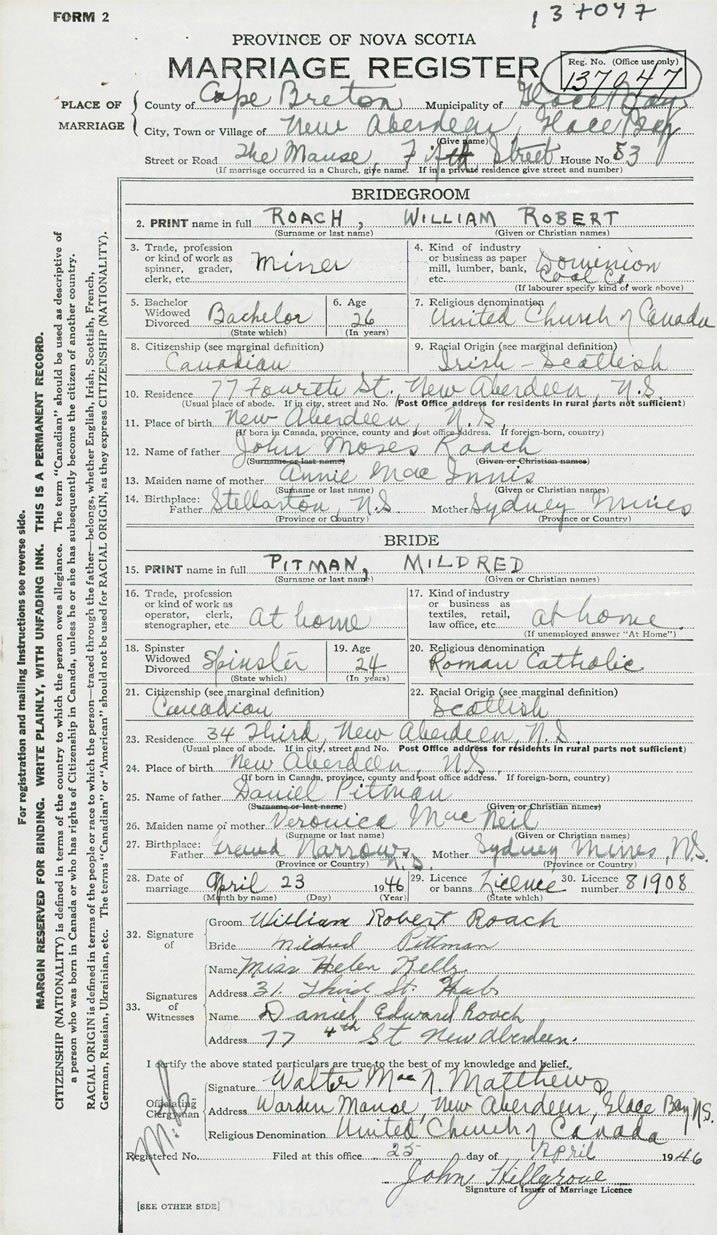 FORM 2
137047
PROVINCE OF NOVA SCOTIA
MARRIAGE REGISTER
Reg. No. (Office use only)
137047
PLACE OF MARRIAGE
County of Cape Breton Municipality of Glace Bay
City, Town or Village of New Aberdeen, Glace Bay
(Give name)
Street or Road The Manse, Fifth Street House No. 53
(If marriage occurred in a Church, give name. If in a private residence give street and number)
BRIDEGROOM
2. PRINT name in full ROACH, WILLIAM ROBERT
(Surname or last name) (Given or Christian names)
3. Trade, profession or kind of work as spinner, grader, clerk, etc. Miner
4. Kind of industry or business as paper mill, lumber, bank, etc. Dominion Coal Co.
(If labourer specify kind of work above)
5. Bachelor Widowed Divorced Bachelor
(State which)
6. Age 26
(In years)
7. Religious denomination
United Church of Canada
8. Citizenship (see marginal definition)
Canadian
9. Racial Origin (see marginal definition)
Irish - Scottish
10. Residence 77 Fourth St., New Aberdeen, N.S.
(Usual place of abode. If in city, street and No. Post Office address for residents in rural parts not sufficient)
11. Place of birth New Aberdeen, N.S.
(If born in Canada, province, county and post office address. If foreign-born, country)
12. Name of father John Moses Roach
(Surname or last name) (Given or Christian names)
13. Maiden name of mother Annie Mac Innis
(Surname or last name) (Given or Christian names)
14. Birthplace: Father Stellarton, N.S Mother Sydney Mines
(Province or Country) (Province or Country)
BRIDE
15. PRINT name in full PITMAN, MILDRED
(Surname or last name) (Given or Christian names)
16. Trade, profession or kind of work as operator, clerk, stenographer, etc. At home
17. Kind of industry or business as textiles, retail, law office, etc. At home
(If unemployed answer "At Home")
18. Spinster Widowed Divorced Spinster
(State which)
19. Age 24
(In years)
20. Religious denomination
Roman Catholic
21. Citizenship (see marginal definition)
Canadian
22. Racial Origin (see marginal definition)
Scottish
23. Residence 34 Third, New Aberdeen, N.S.
(Usual place of abode. If in city, street and No. Post Office address for residents in rural parts not sufficient)
24. Place of birth New Aberdeen, N.S.
(If born in Canada, province, county and post office address. If foreign-born, country)
25. Name of father Daniel Pitman
(Surname or last name) (Given or Christian names)
26. Maiden name of mother Veronica Mac Neil
(Surname or last name) (Given or Christian names)
27. Birthplace: Father Narrows, N.S. Mother Sydney Mines, N.S.
(Province or Country) (Province or Country)
28. Date of marriage April 23 1946
(Month by name) (Day) (Year)
29. Licence or banns Licence
(State which)
30. Licence number 81908
32. Signature of
Groom William Robert Roach
Bride Mildred Pittman
33. Signatures of Witnesses
Name Miss Helen Kelly
Address 31 Third St. Hub
Name Daniel Edward Roach
Address 77 4th St New Aberdeen.
I certify the above stated particulars are true to the best of my knowledge and belief.
Officiating Clergyman
Signature Walter Mac N. Matthews
Address Warden Manse, New Aberdeen, Glace Bay N.S.
Religious Denomination United Church of Canada
Registered No. Filed at this office 25 day of April 1946
John Hillgrove
Signature of Issuer of Marriage Licence
[SEE OTHER SIDE]
For registration and mailing instructions see reverse side.
MARGIN RESERVED FOR BINDING. WRITE PLAINLY, WITH UNFADING INK. THIS IS A PERMANENT RECORD.
CITIZENSHIP (NATIONALITY) is defined in terms of the country to which the person owes allegiance. The term "Canadian" should be used as descriptive of
a person who was born in Canada or who has rights of Citizenship in Canada, unless he or she has subsequently become the citizen of another country.
RACIAL ORIGIN is defined in terms of the people or race to which the person—traced through the father—belongs, whether English, Irish, Scottish, French,
German, Russian, Ukrainian, etc. The terms "Canadian" or "American" should not be used for RACIAL ORIGIN, as they express CITIZENSHIP (NATIONALITY).